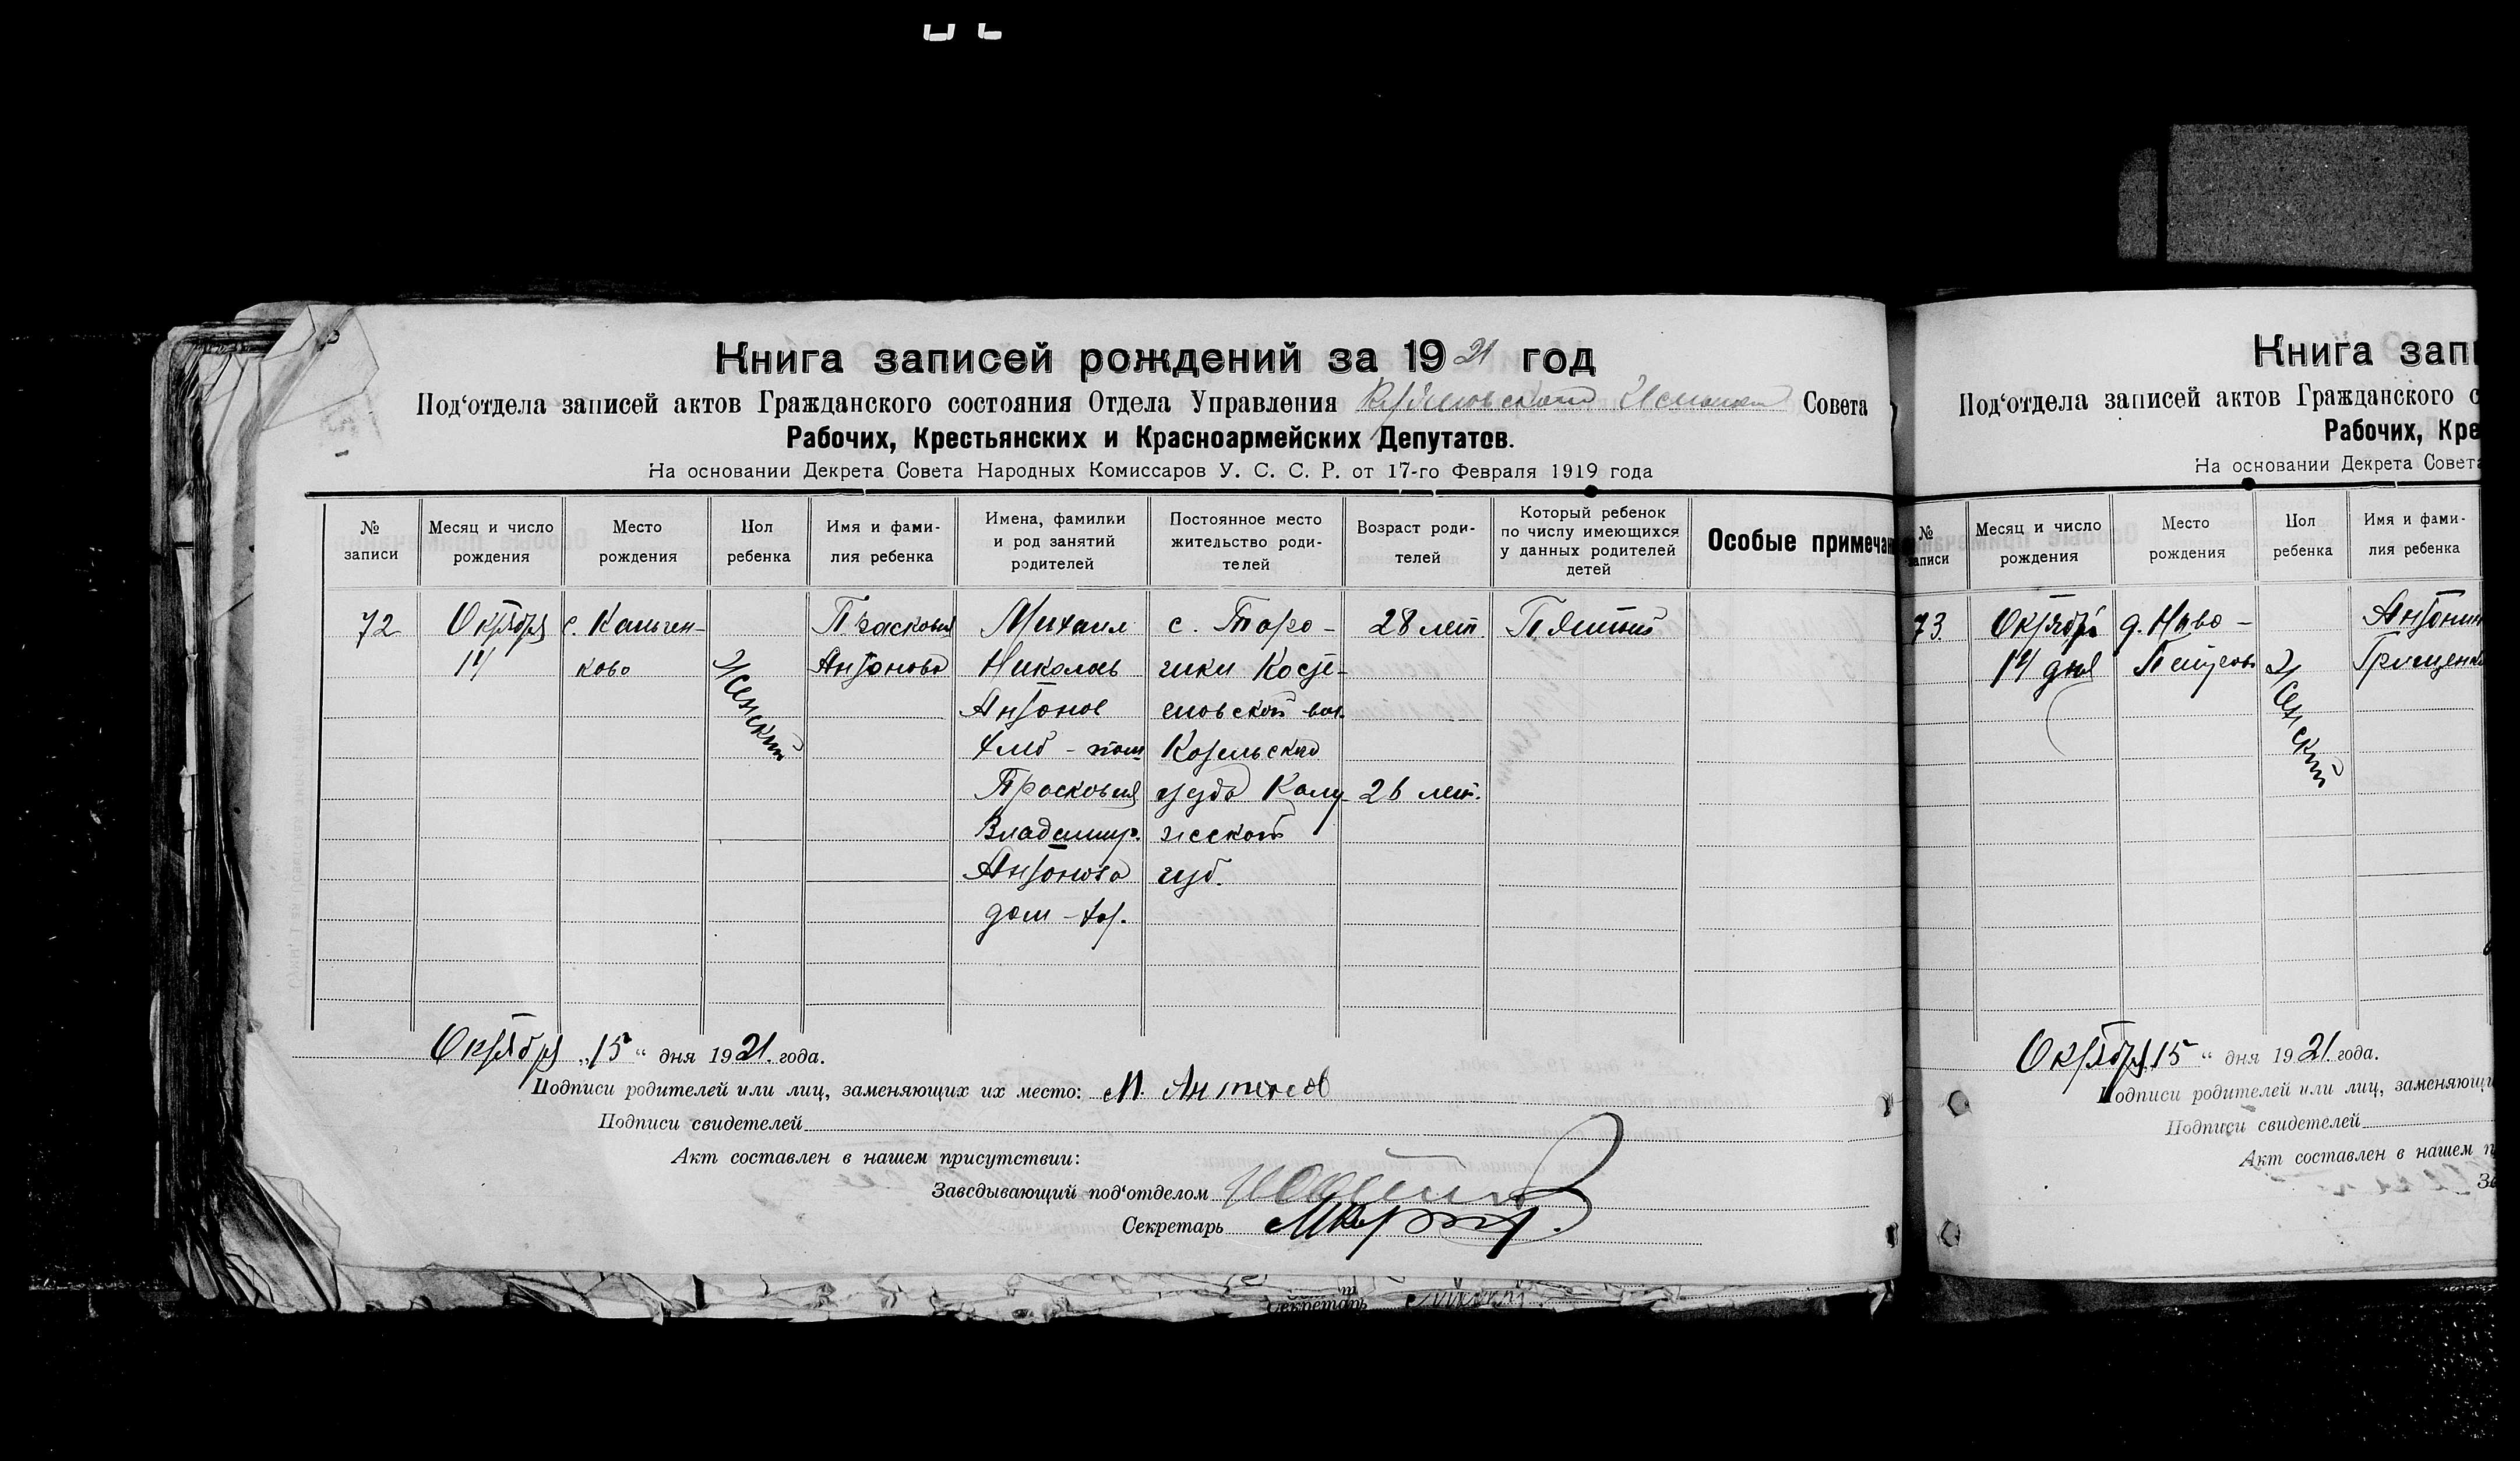 Книга записей рождений за 1921 год
Под'отдела записей актов Гражданского состояния Отдела Управления Совета
Рабочих, Крестьянских и Красноармейских Депутатов.
На основании Декрета Совета Народных Комиссаров У. С. С. Р. от 17-го Февраля 1919 года
№ записи
Месяц и число рождения
Место рождения
Пол ребенка
Имя и фами-
лия ребенка
Имена, фамилии
и род занятий
родителей
Постоянное место
жительство роди-
телей
Возраст роди-
телей
Который ребенок
по числу имеющихся
у данных родителей
детей
Особые примечан
72
Октября
14
с. Кальчен-
ково
Женский
Прасковья
Антонова
Михаил
Николаев
Антонов
Прасковия
Владимир.
Антонова
дом-хоз.
с.
Козельского
уезда Калу-
жской
губ.
28 лет
26 лет.
Пятый
Октября „15“ дня 1921. года.
Подписи родителей или лиц, заменяющих их место: М. Антонов
Подписи свидетелей
Акт составлен в нашем присутствии:
Заведывающий под'отделом
Секретарь
Секретарь
Книга зап
Под'отдела записей актов Гражданского с
Рабочих, Кре
На основании Декрета Совета
№
записи
Месяц и число
рождения
Место
рождения
Пол
ребенка
Имя и фами-
лия ребенка
73
Октября
14 дня
д. Ново-
Женский
Антонин
Грищенк
Октября 15 “ дня 1921. года.
Подписи родителей или лиц, заменяющи
Подписи свидетелей
Акт составлен в нашем п
За